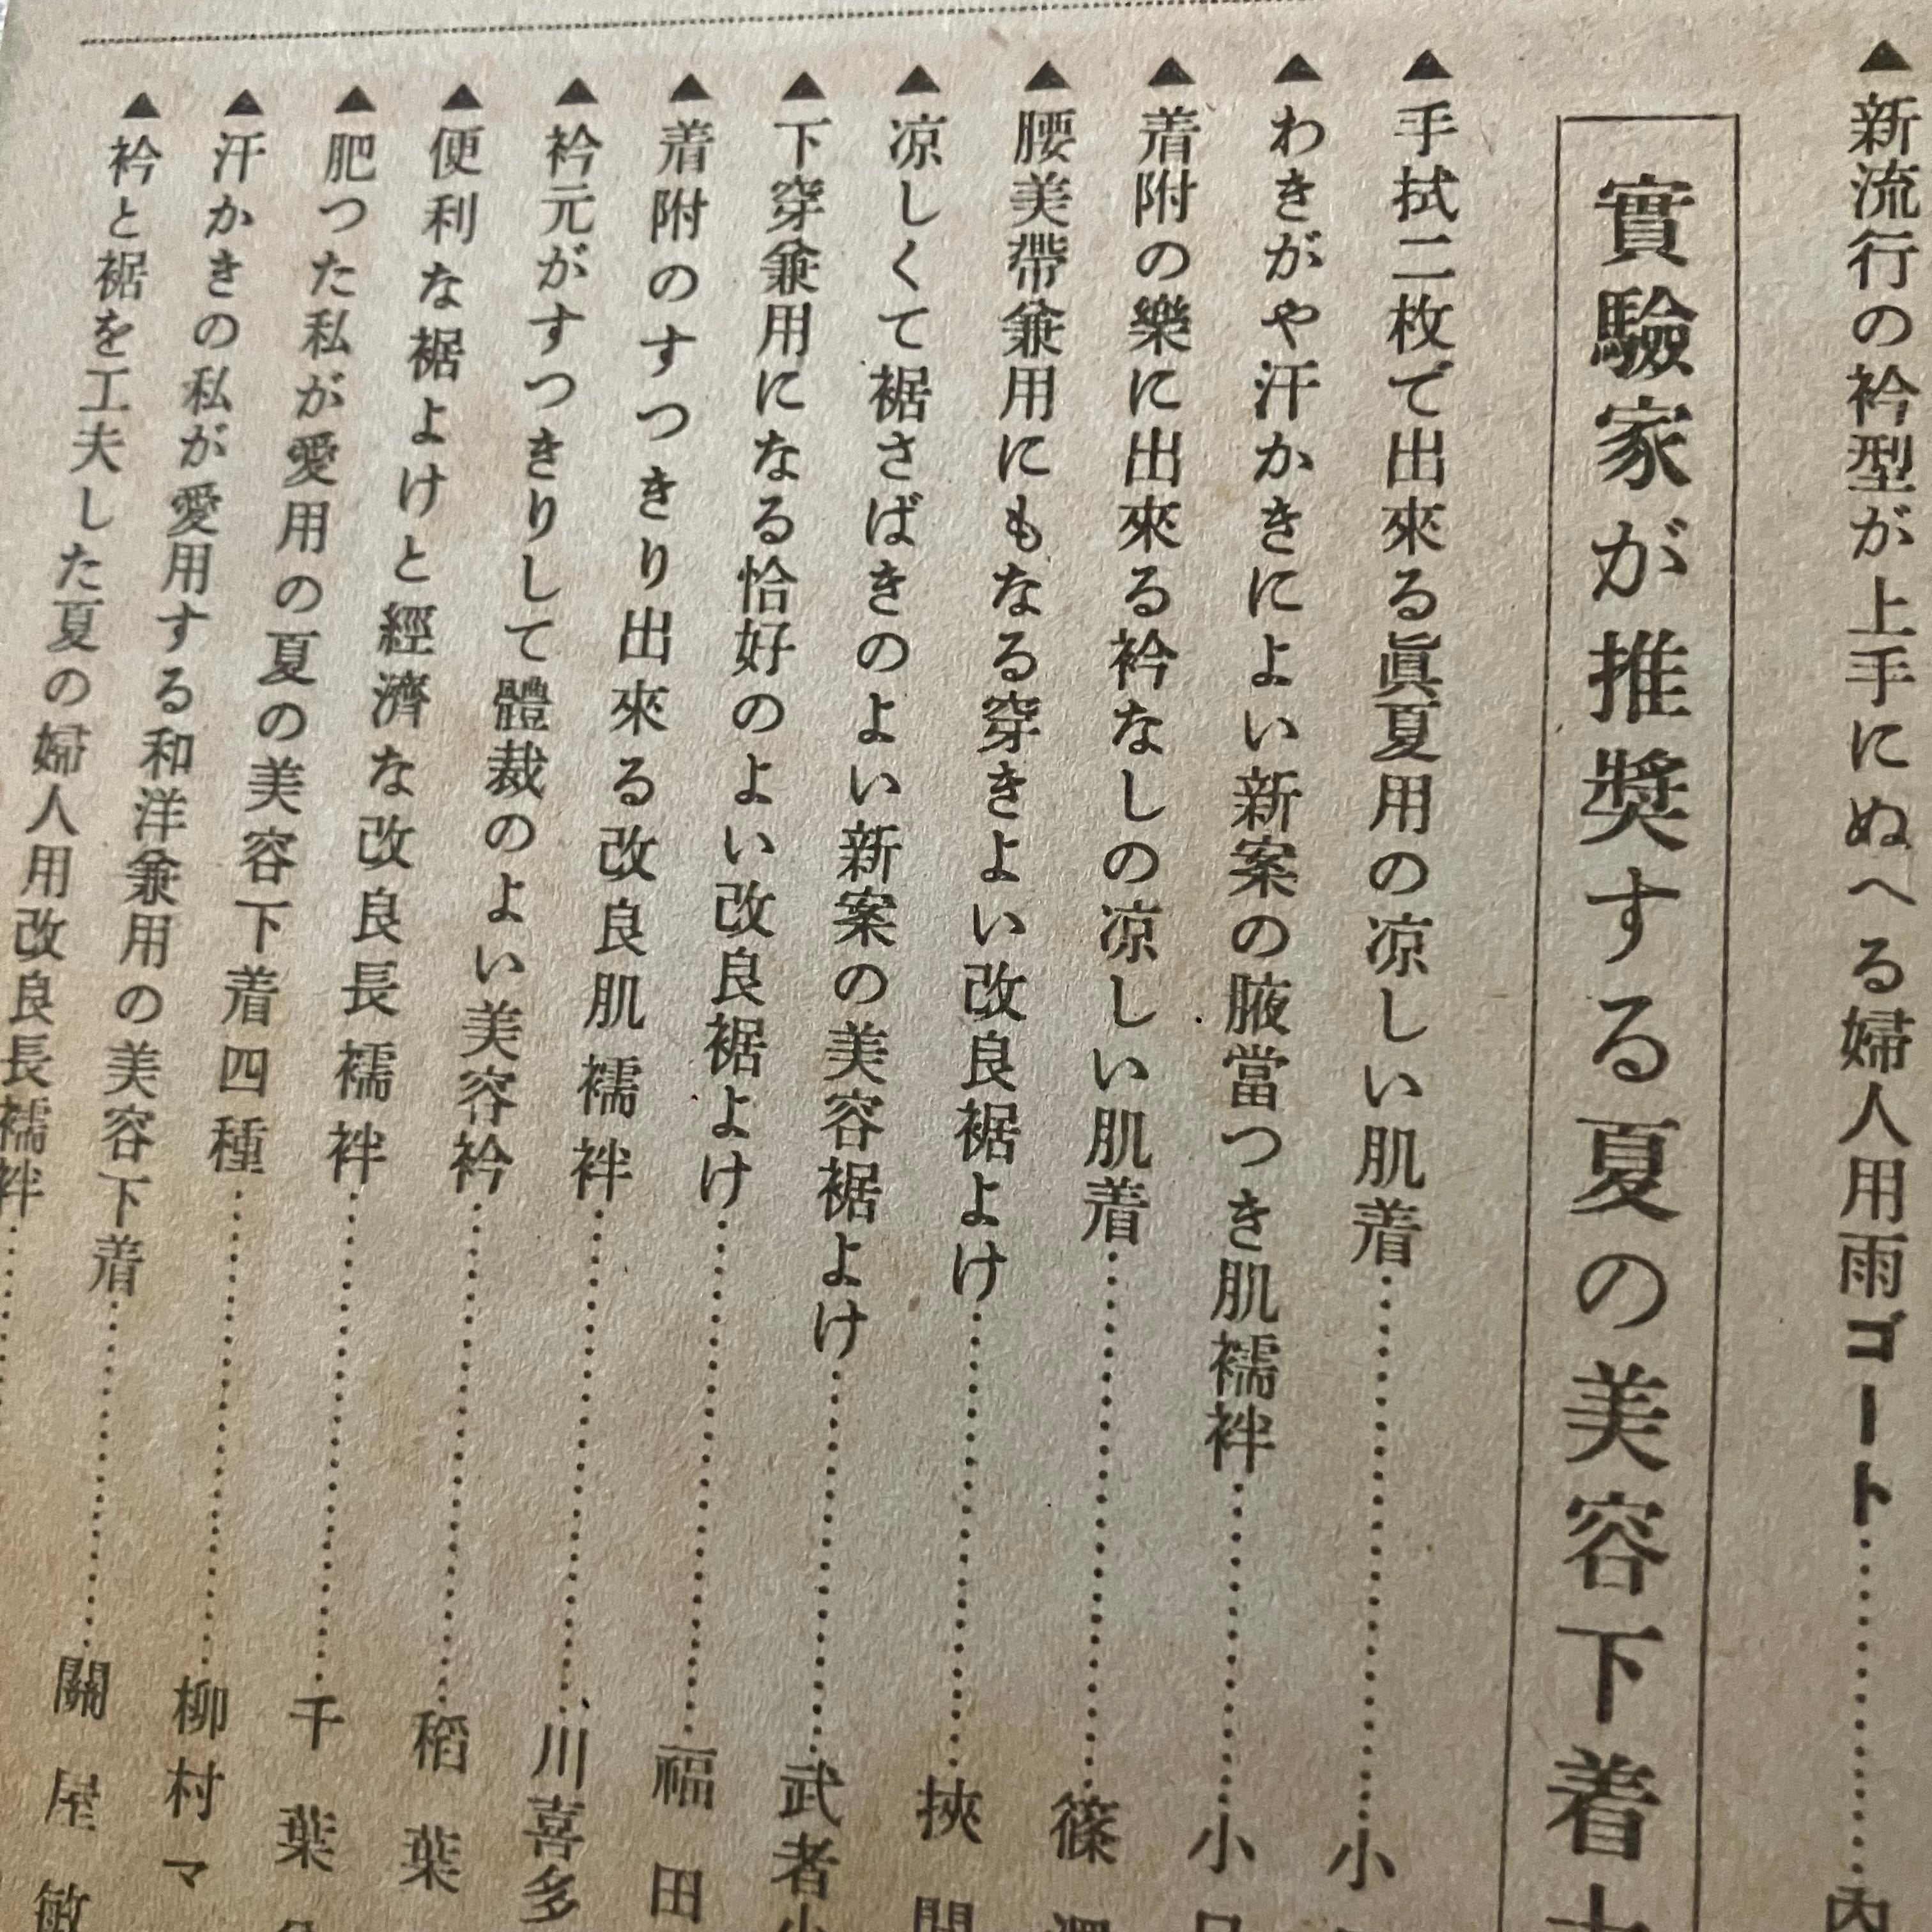 ▲新流行の衿型が上手にぬへる婦人用雨ゴート………内
實驗家が推奬する夏の美容下着十
▲手拭二枚で出來る眞夏用の凉しい肌着………小
▲わきがや汗かきによい新案の腋當つき肌襦袢………小
▲着附の樂に出來る衿なしの凉しい肌着………篠
▲腰美帶兼用にもなる穿きよい改良裾よけ………挾間
▲凉しくて裾さばきのよい新案の美容裾よけ………武者小
▲下穿兼用になる恰好のよい改良裾よけ………福田
▲着附のすつきり出來る改良肌襦袢………川喜多
▲衿元がすつきりして體裁のよい美容衿………稻葉
▲便利な裾よけと經濟な改良長襦袢………千葉
▲肥つた私が愛用の夏の美容下着四種………柳村マ
▲汗かきの私が愛用する和洋兼用の美容下着………關屋敏
▲衿と裾を工夫した夏の婦人用改良長襦袢………